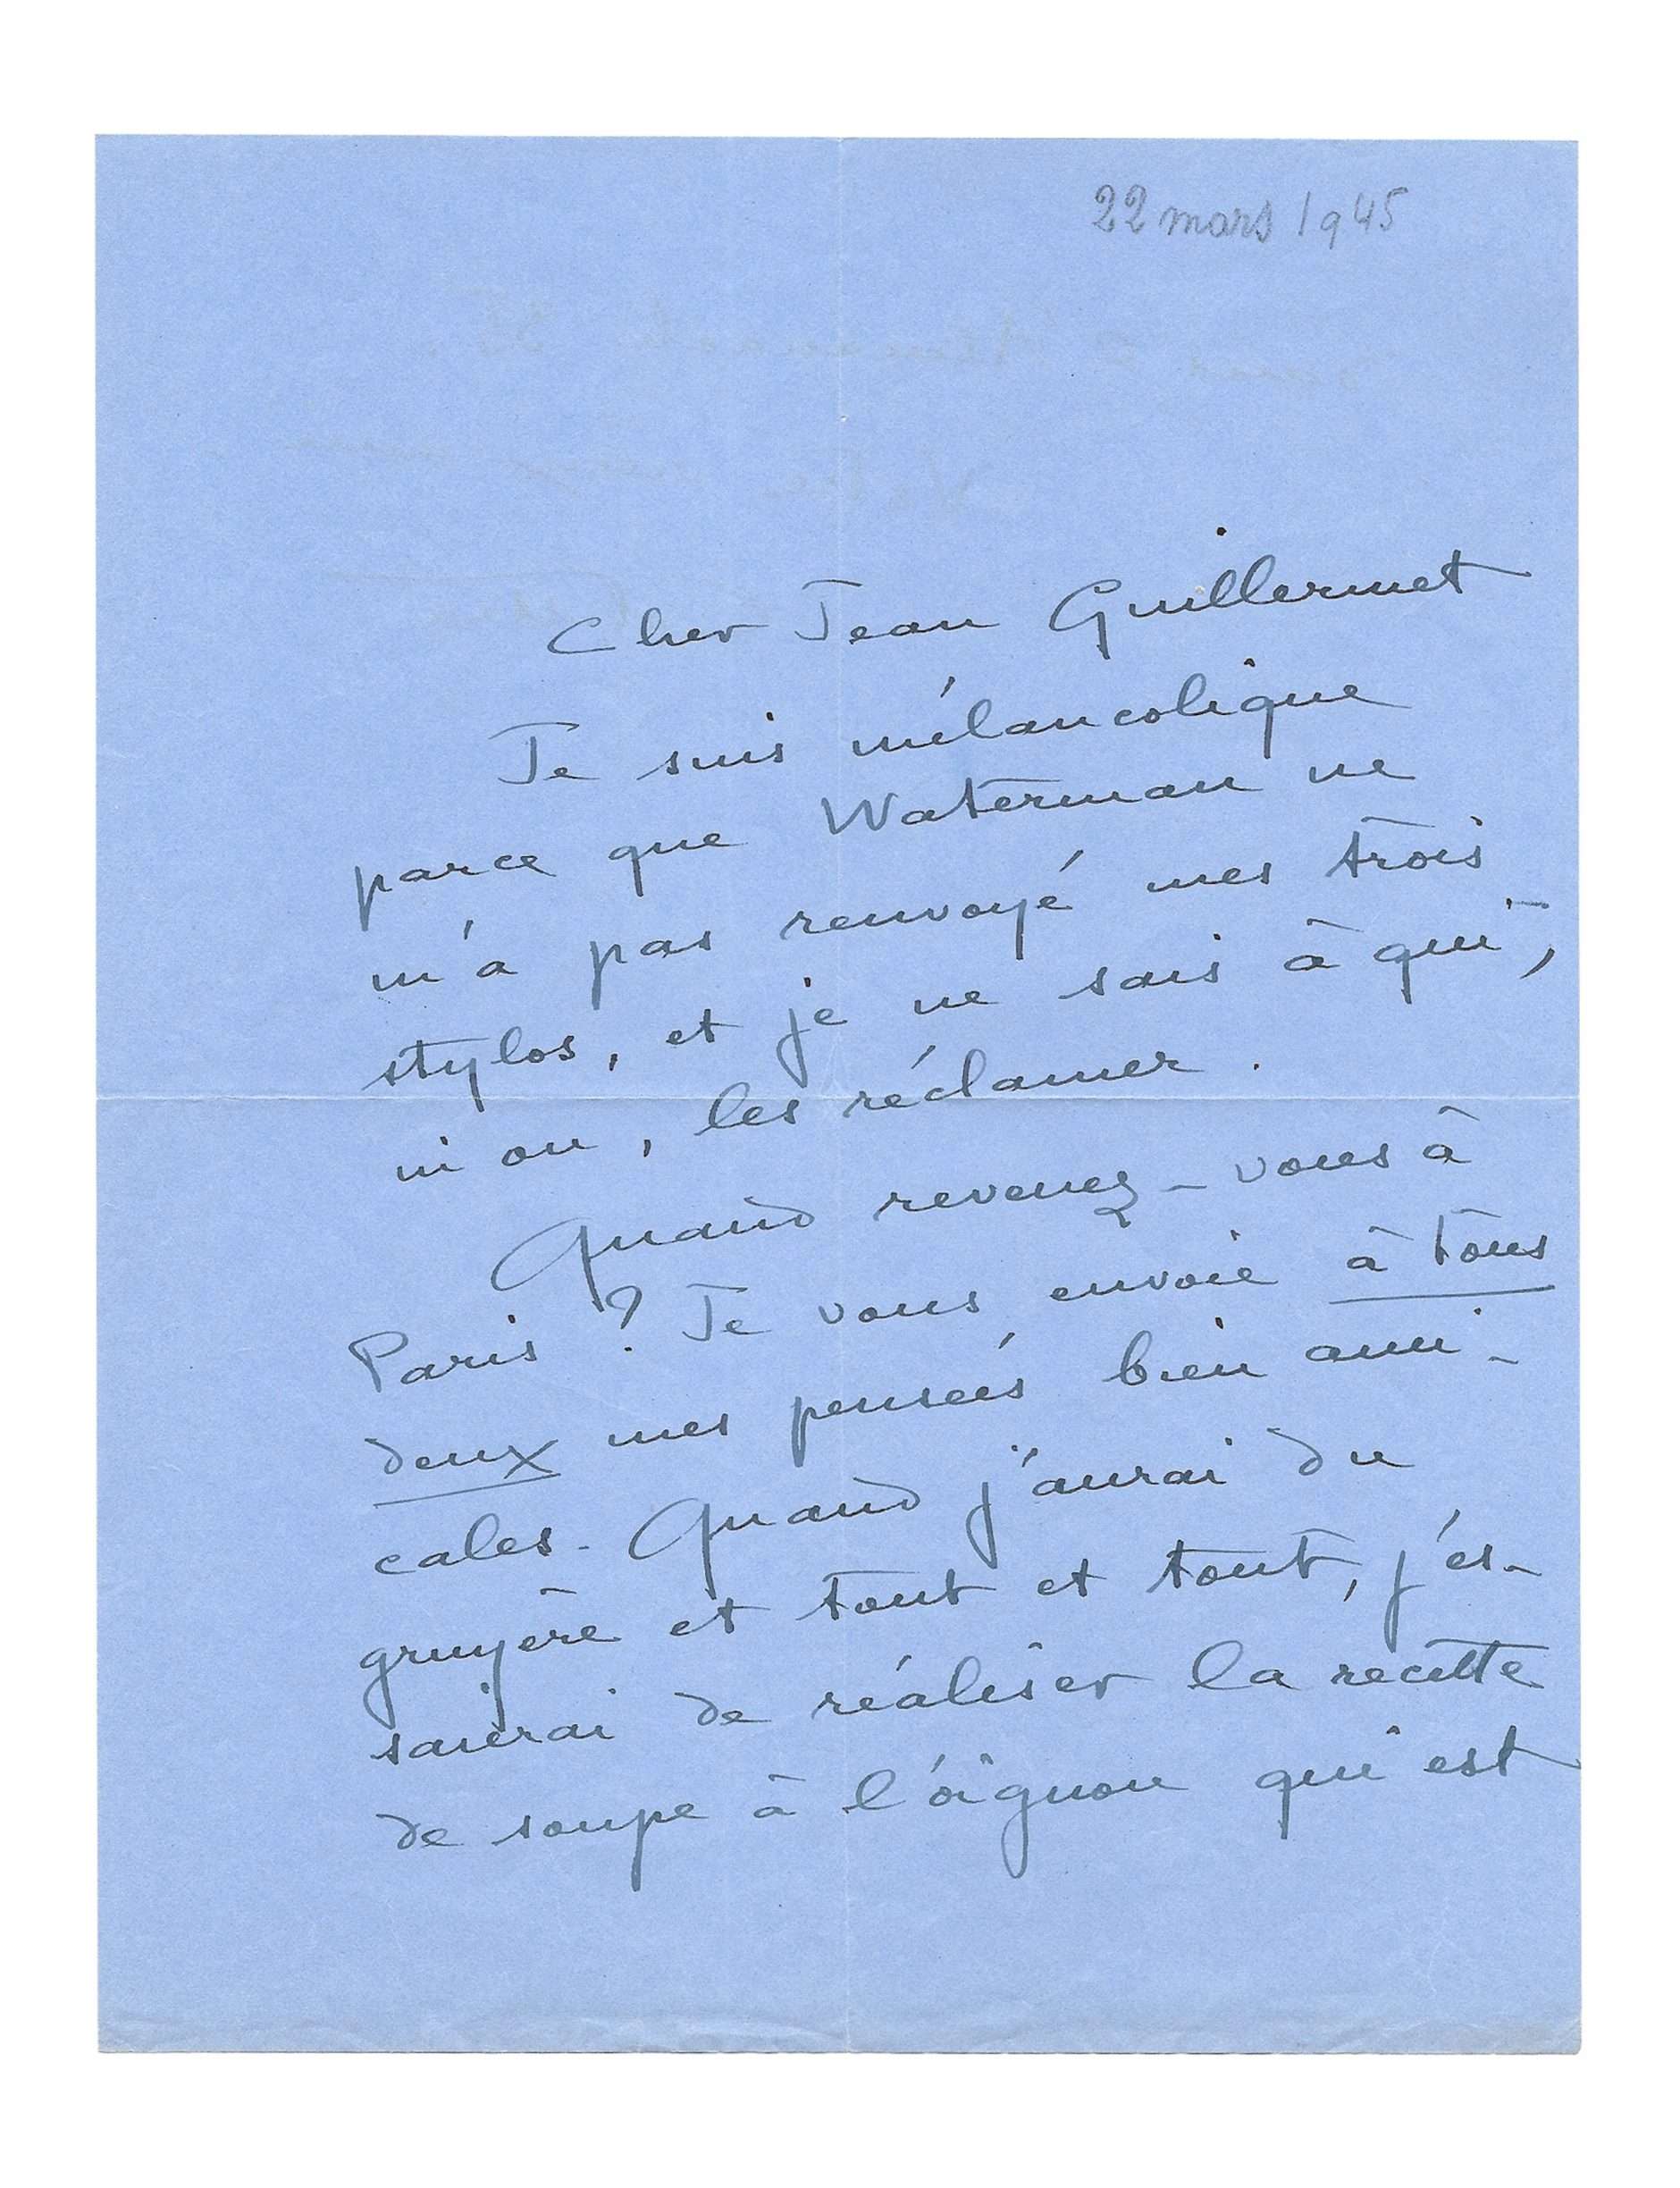 22 mars 1945
Cher Jean Guillermet
Je suis mélancolique
parce que Waterman ne
m'a pas renvoyé mes trois
stylos, et je ne sais à qui,
ni ou, les réclamer.
Quand revenez-vous à
Paris ? Je vous envoie à tous
deux mes pensées bien ami-
cales. Quand j'aurai du
gruyère et tout et tout, j'es-
saierai de réaliser la recette
de soupe à l'oignon qui est